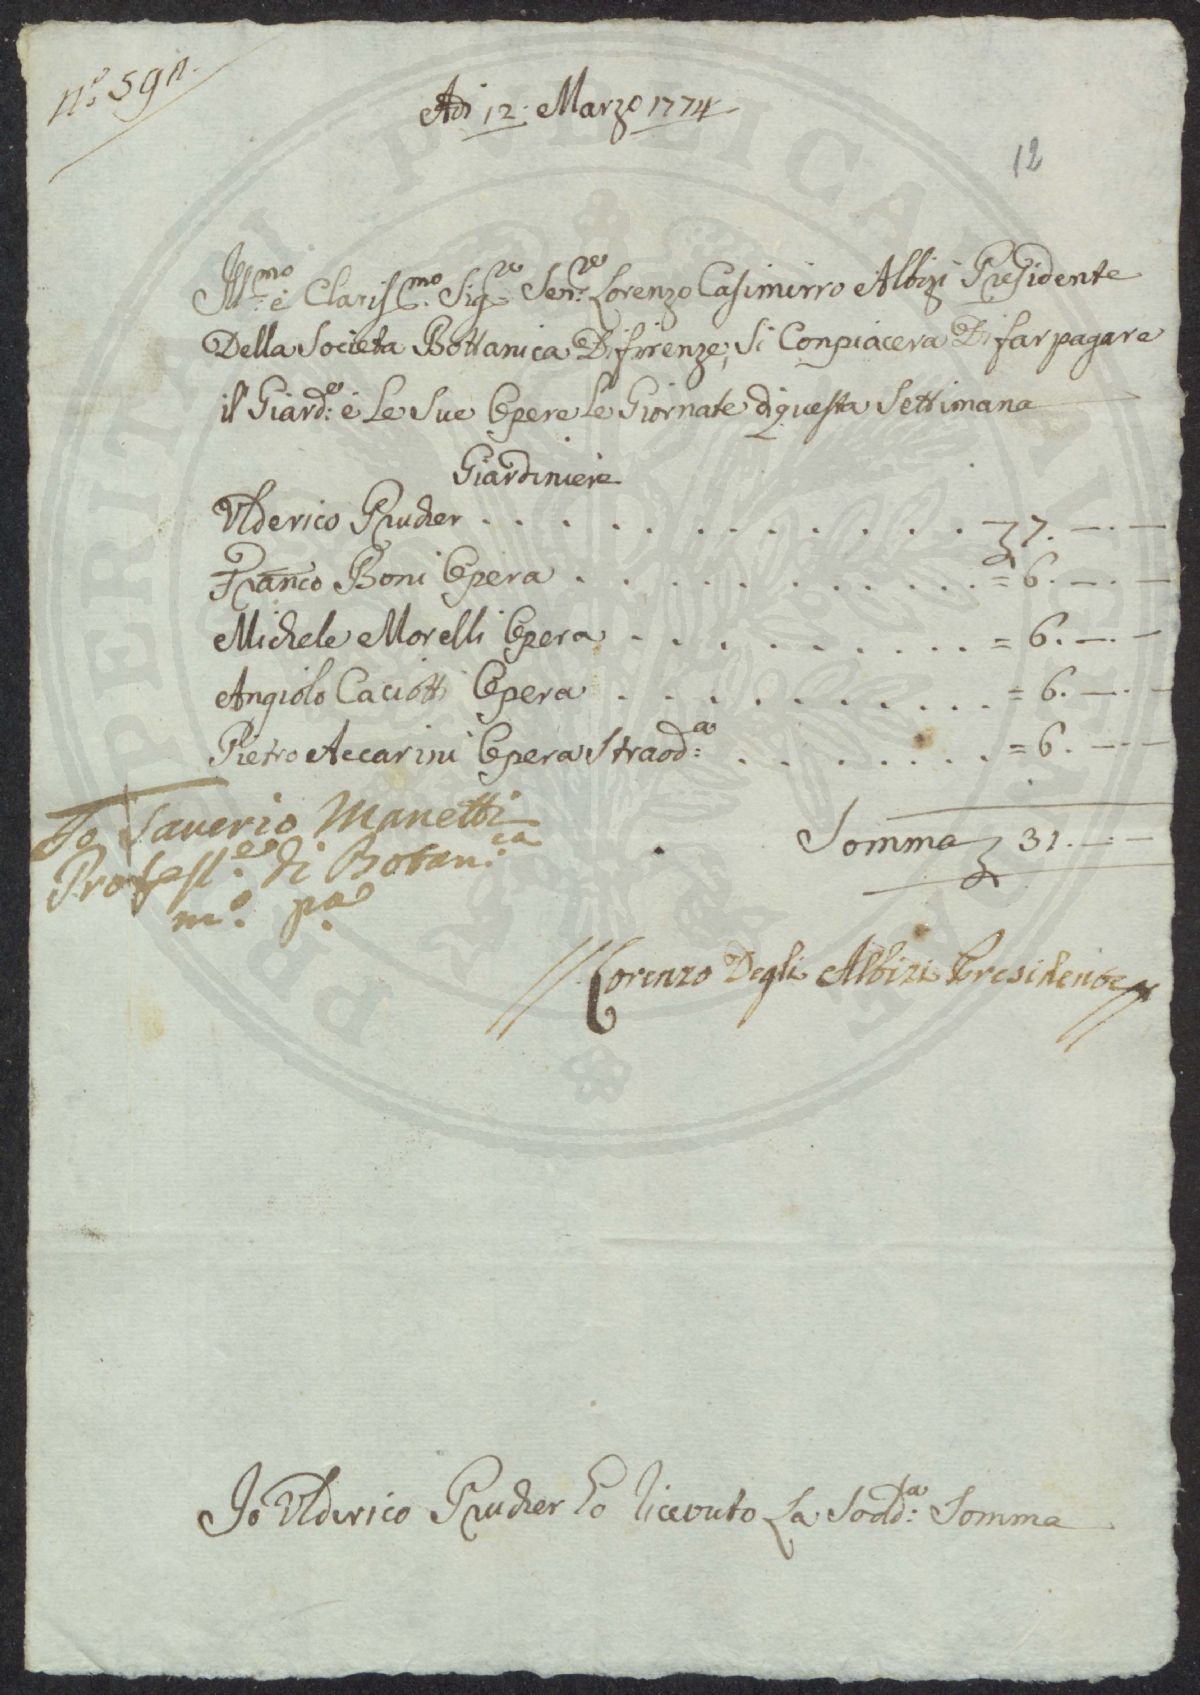 n.º 59
Adi 12: Marzo 1774
12
Ill:mo è Clariss:mo Sig:re Sen:re Lorenzo Casimirro Albizi Presidente
Della Societa Bottanica Di firenze; Si Conpiacera Di far pagare
il Giard:e è Le Sue Opere Le Giornate di questa Settimana
Giardiniere
Ulderico Prucher . . . . . . . . . . . . 7. —. —
Franco Boni Opera . . . . . . . . . . . = 6. —. —
Michele Morelli Opera . . . . . . . . . = 6. —. —
Angiolo Caciotti Opera . . . . . . . . . = 6. —. —
Pietro Accarini Opera Straod:a . . . . . . . = 6. —. —
Somma 31. —. —
Io Saverio Manetti
Profess:e di Botan:ca
m:o p:a
// Lorenzo Degli Albizi Presidente //
Io Ulderico Prucher ho ricevuto La Sodd:a Somma